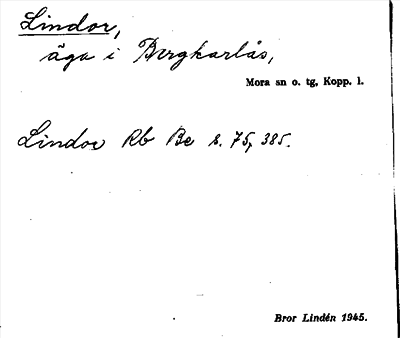 Lindor,
äga i Bergkarlås,
Mora sn o. tg, Kopp. l.
Lindor Rb Be s. 75, 385.
Bror Lindén 1945.